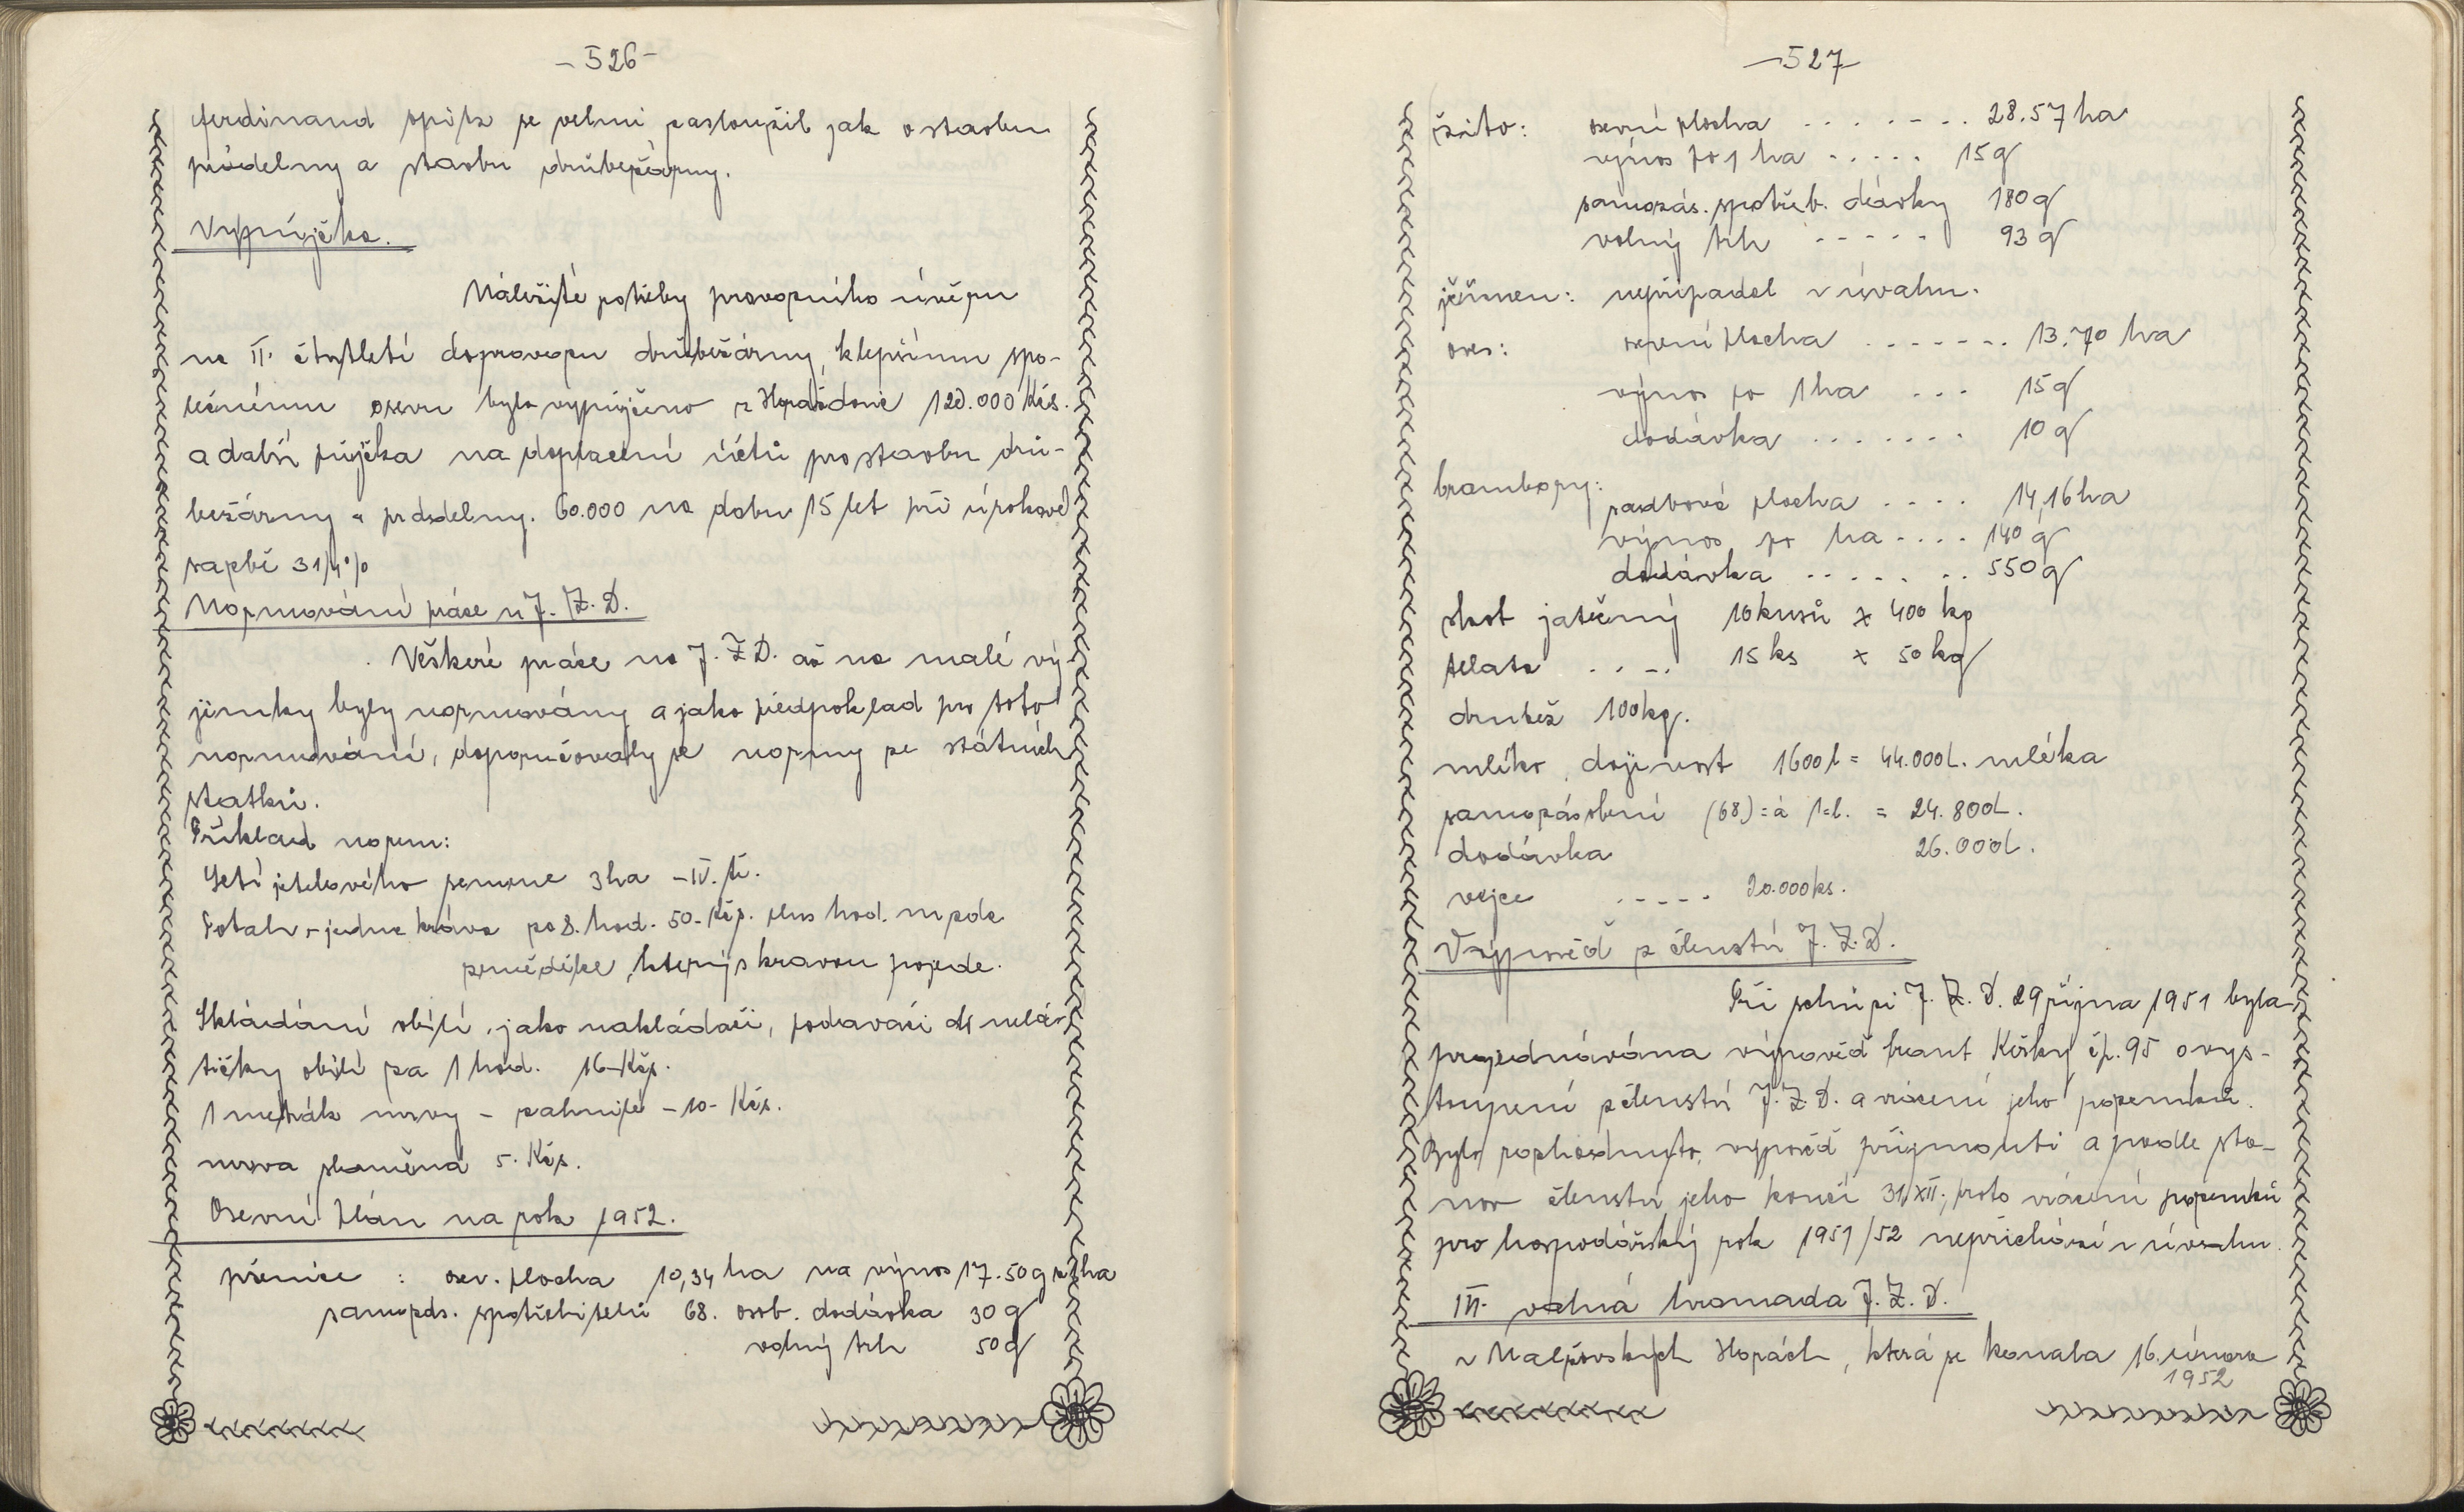 - 526 -
Ferdinand Spitz se velmi zasloužil jak o stavbu
prádelny a stavbu drůbežárny.
Vypůjčka.
Náležité potřeby provozního úvěru
na II. čtvrtletí doprovozu drůbežárny, k lepšímu spo-
lečnému osevu bylo vypůjčeno z Horažďovic 120.000 Kčs.
a další půjčka na doplacení účtů pro stavbu drů-
bežárny a prádelny. 60.000 na dobu 15 let při úrokové
sazbě 3 1/4 %
Normování práce u J. Z. D.
Veškeré práce na J. Z D. až na malé vý-
jimky byly normovány a jako předpoklad pro toto
normování, doporučovaly se normy ze státních
statků.
Příklad norem:
Setí jetelového semene 3 ha - IV. tř.
Potah - jedna kráva po 8. hod. 50.- Kčs. plus hod. mzda
zemědělce, který s kravou pojede.
Skládání obilí, jako nakládači, podavači do mlá-
tičky obilí za 1 hod. 16 - Kčs.
1 metrák mrvy - zahnité - 10 - Kčs.
mrva slaměná 5. Kčs.
Osevní plán na rok 1952.
pšenice : osev. plocha 10,34 ha na výnos 17.50 q z ha
samozás. spotřebitelů 68. osob. dodávka 30 q
volný trh 50 q
- 527 -
žito: osevní plocha . . . . . . . 28.57 ha
výnos po 1 ha . . . . . 15 q
samozás. spotřeb. dávky 180 q
volný trh - - - - - 93 q
ječmen: nepřipadal v úvahu.
oves: osevní plocha . . . . . . . 13.70 ha
výnos po 1 ha . . . 15 q
dodávka . . . . . . . 10 q
brambory: sadbová plocha . . . . 14,16 ha
výnos po ha . . . . 140 q
dodávka . . . . . . . 550 q
skot jatečný 10 kusů x 400 kg
telata . . - . 15 ks x 50 kg
drubež 100 kg.
mléko, dojivost 1600 l = 44.000 L. mléka
samozásobení (68) = á 1 = l. = 24.800 L.
dodávka 26.000 L.
vejce - - - - - 20.000 ks.
Výpověď z členství J. Z. D.
Při schůzi J. Z. D. 29 října 1951 byla
projednávána výpověď Frant. Kišky čp. 95 o vys-
toupení z členství J. Z. D. a vrácení jeho pozemků.
Bylo rozhodnuto, výpověď přijmouti a podle sta-
nov členství jeho končí 31. XII., proto vrácení pozemků
pro hospodářský rok 1951/52 nepřichází v úvahu.
III. valná hromada J. Z. D.
v Nalžovských Horách, která se konala 16. února
1952